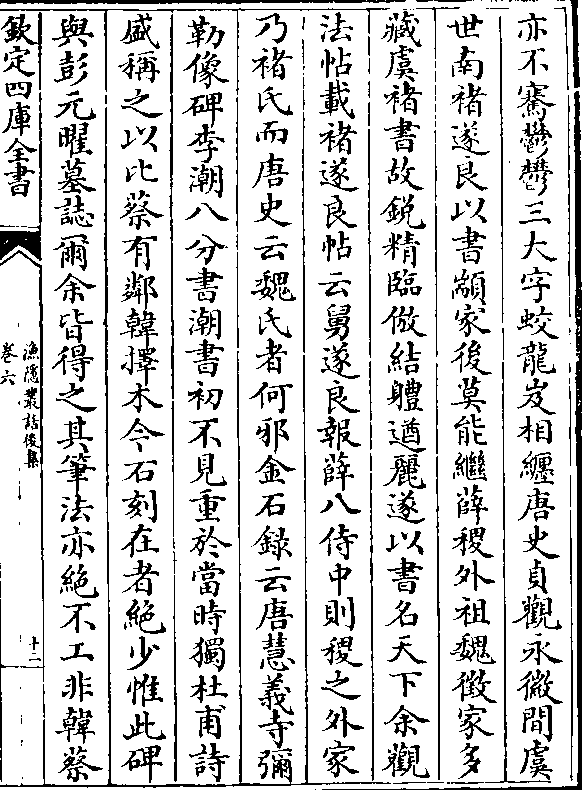 亦不騫鬱鬱三大字蛟龍岌相纏唐史貞觀永徽間虞
世南褚遂良以書顓家後莫能繼薛稷外祖魏徵家多
藏虞褚書故鋭精臨倣結體遒麗遂以書名天下余觀
法帖載褚遂良帖云舅遂良報薛八侍中則稷之外家
乃褚氏而唐史云魏氏者何邪金石録云唐慧義寺彌
勒像碑李潮八分書潮書初不見重於當時獨杜甫詩
盛稱之以比蔡有鄰韓擇木今石刻在者絶少惟此碑
與彭元曜墓誌爾余皆得之其筆法亦絶不工非韓蔡
欽定四庫全書
漁隱叢話後集
卷六
十二